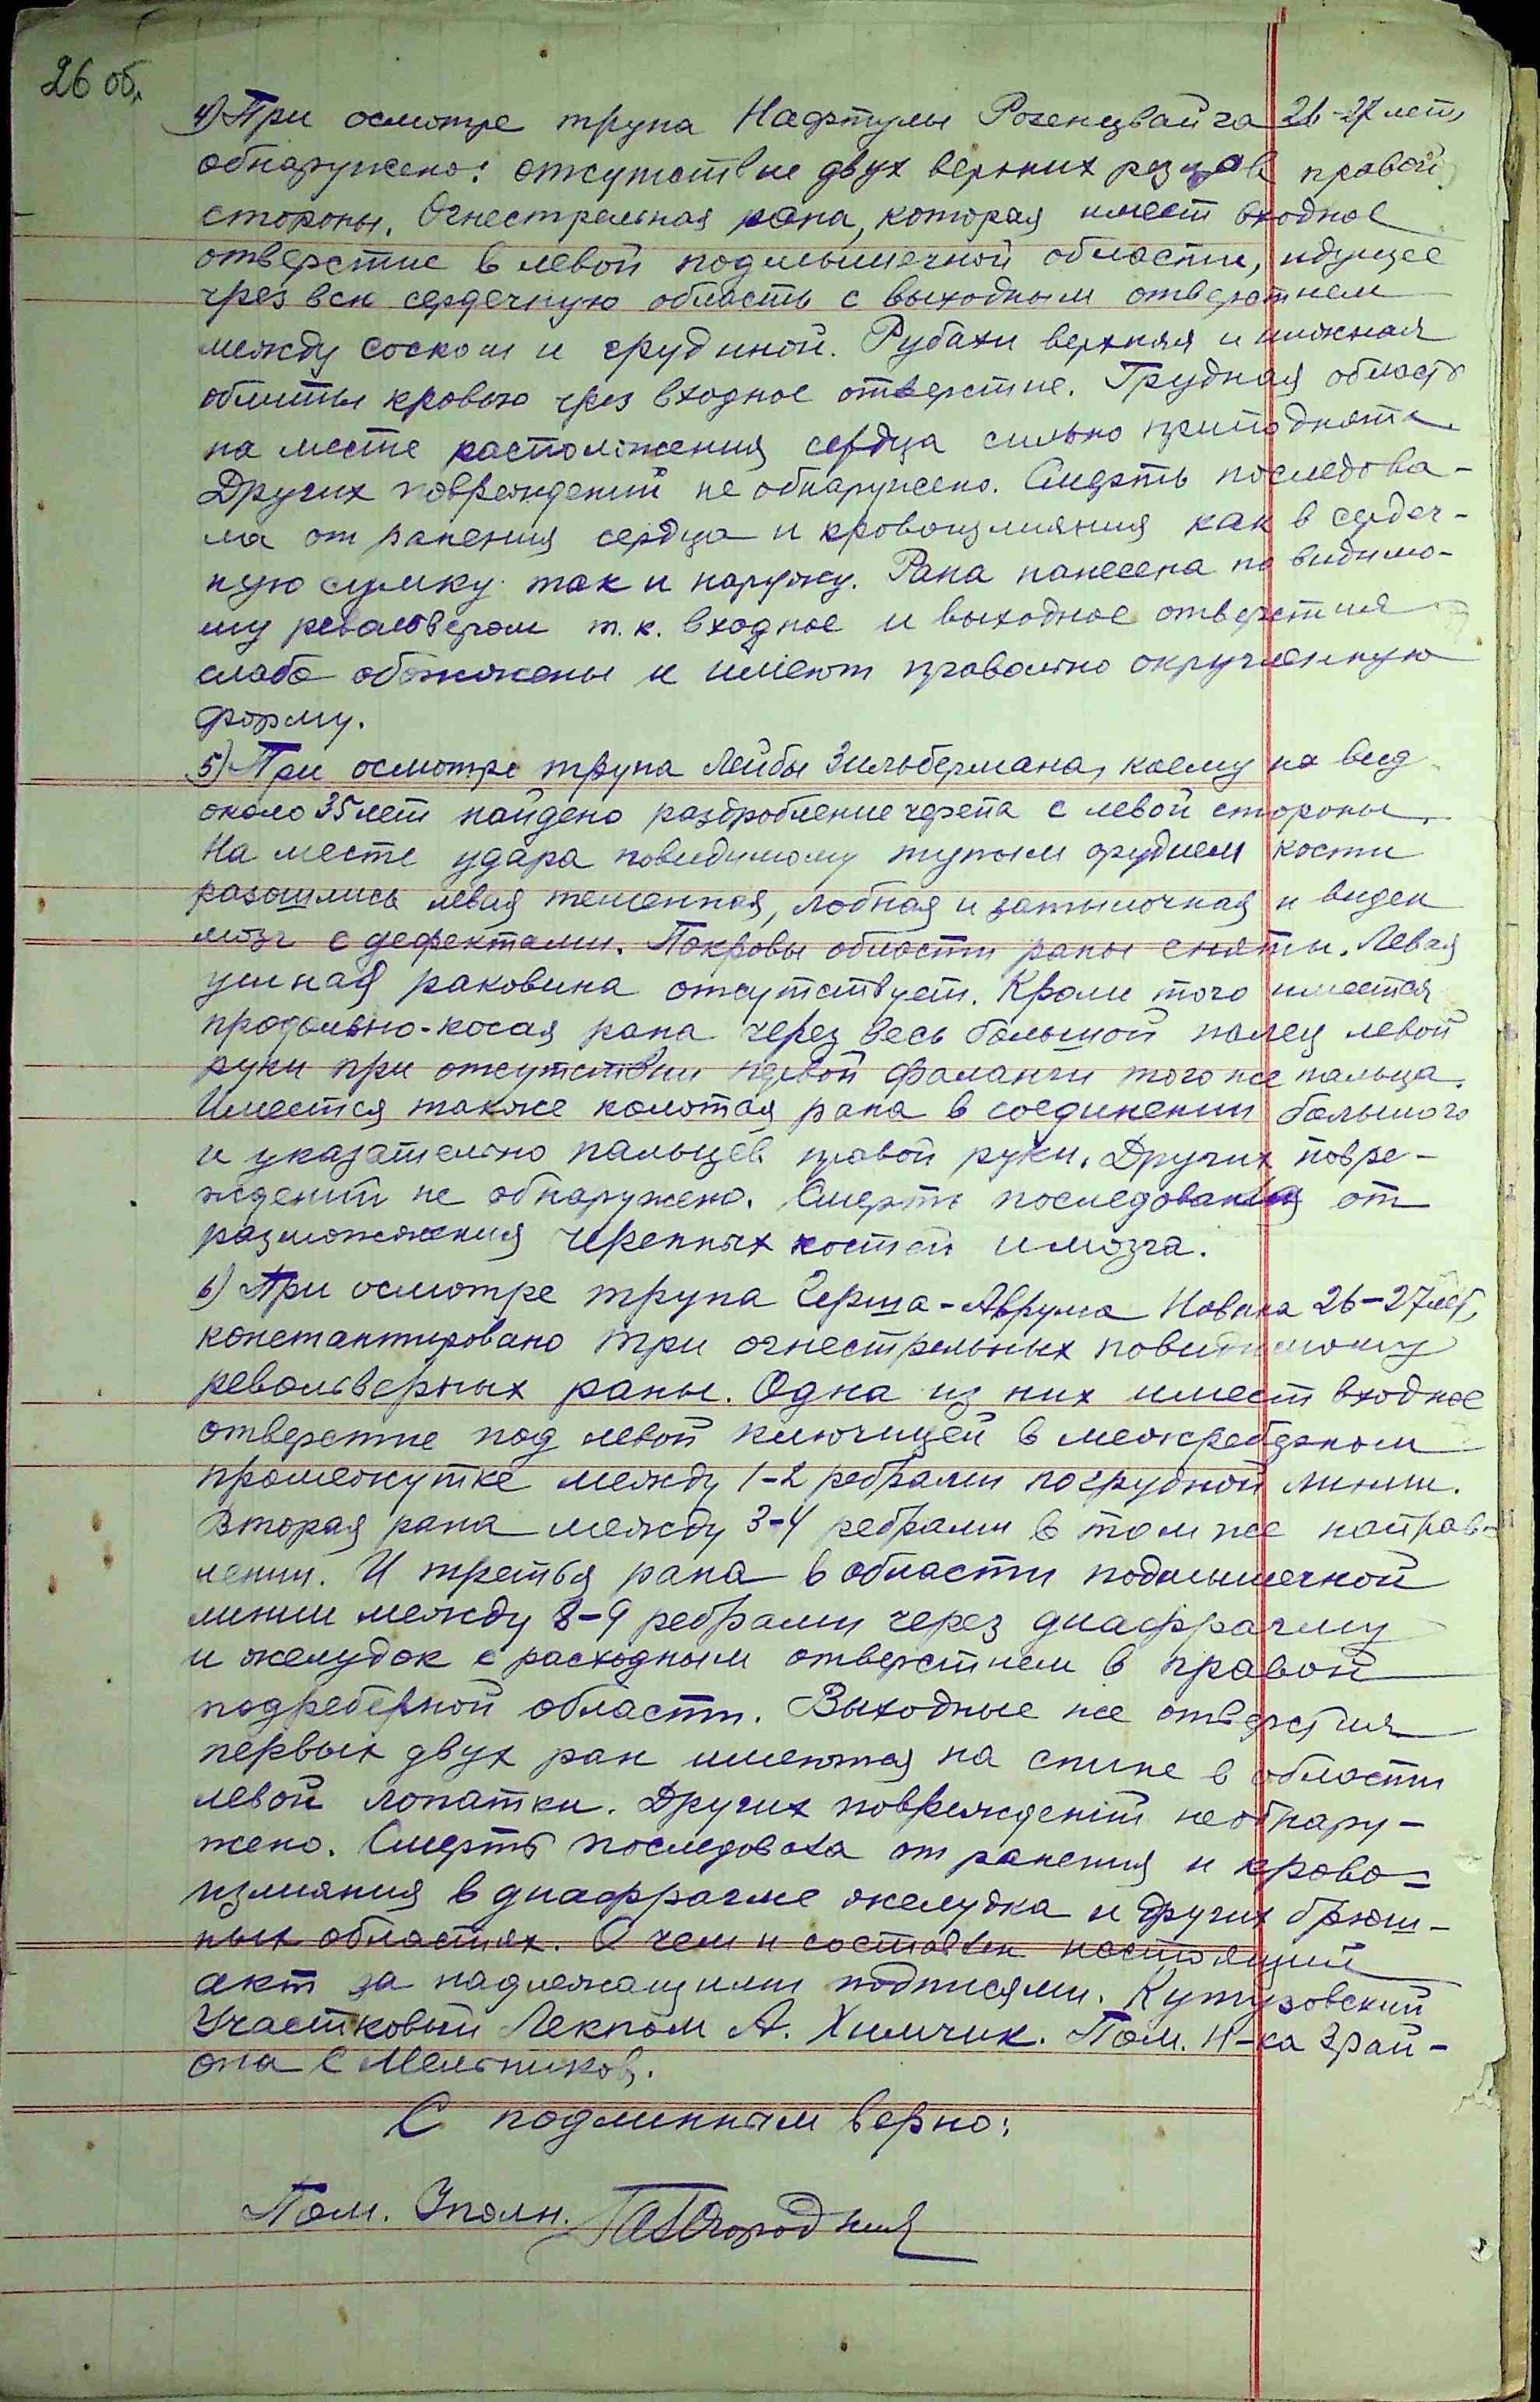 26 об.
4) При осмотре трупа Нафтулы Розенцвайга 26-27 лет,
обнаружено: отсутствие двух верхних резцов правой
стороны. Огнестрельная рана, которая имеет входное
отверстие в левой подмышечной области, идущее
чрез всю сердечную область с выходным отверстием
между соском и грудиной. Рубахи верхняя и нижная
облиты кровью чрез входное отверстие. Грудная область
на месте расположения сердца сильно приподнята.
Других повреждений не обнаружено. Смерть последова-
ла от ранения сердца и кровоизлияния как в сердеч-
ную сумку так и наружу. Рана нанесена по видимо-
му револьвером т.к. входное и выходное отверстия
слабо обожжены и имеют правольно округленную
форму.
5) При осмотре трупа Лейбы Зильбермана, коему на вид
около 35 лет найдено раздробление черепа с левой стороны.
На месте удара повидимому тупым орудием кости
разошлись левая теменная, лобная и затылочная и виден
мозг с дефектами. Покровы области раны сняты. Левая
ушная раковина отсутствует. Кроме того имеется
продольно-косая рана через весь большой палец левой
руки при отсутствии первой фаланги того же пальца.
Имеется также колотая рана в соединении большого
и указательно пальцев правой руки. Других повре-
ждений не обнаружено. Смерть последовала от
размозжения черепных костей и мозга.
6) При осмотре трупа Герша-Аврума Новака 26-27 лет,
константировано три огнестрельных повидимому
револьверных раны. Одна из них имеет входное
отверстие под левой ключицей в межреберном
промежутке между 1-2 ребрами по грудной линии.
Вторая рана между 3-4 ребрами в том же направ-
лении. И третья рана в области подмышечной
линии между 8-9 ребрами через диафрагму
и желудок с расходным отверстием в правой
подреберной области. Выходные же отверстия
первых двух ран имеются на спине в области
левой лопатки. Других повреждений не обнару-
жено. Смерть последовала от ранения и крово-
излияния в диафрагме желудка и других брюш-
ных областях. О чем и составлен настоящий
акт за надлежащими подписями. Кутузовский
Участковый Лекпом А. Химчик. Пом. Н-ка 3 рай-
она С Мельников.
С подлинным верно:
Пом. Уполн.